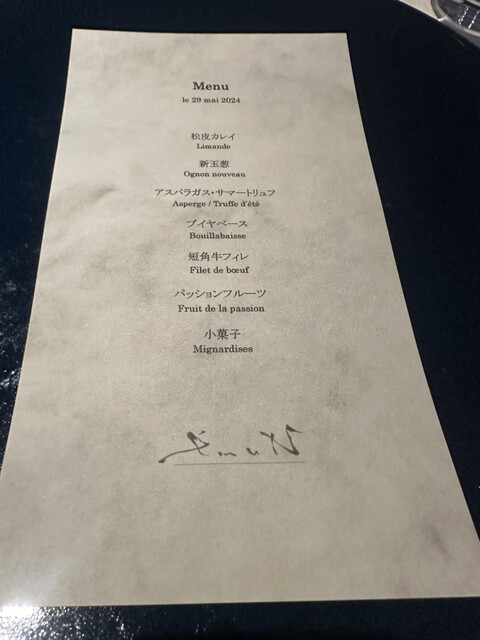 Menu
le 29 mai 2024
松皮カレイ
Limande
新玉葱
Ognon nouveau
アスパラガス・サマートリュフ
Asperge / Truffe d'été
ブイヤベース
Bouillabaisse
短角牛フィレ
Filet de bœuf
パッションフルーツ
Fruit de la passion
小菓子
Mignardises